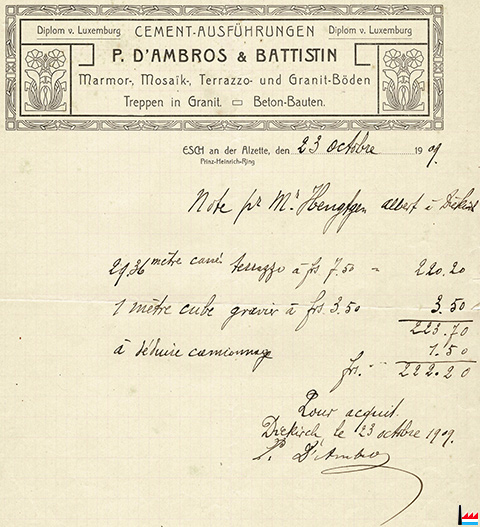 Diplom v. Luxemburg CEMENT-AUSFÜHRUNGEN Diplom v. Luxemburg
P. D'AMBROS & BATTISTIN
Marmor-, Mosaïk-, Terrazzo- und Granit-Böden
Treppen in Granit. Beton-Bauten.
ESCH an der Alzette, den 23 octobre 1909.
Prinz-Heinrich-Ring
Note pr Mr Hengtgen albert à Diekirch
2936 mètre carré terrazzo à frs 7.50 = 220.20
1 mètre cube gravir à frs. 3.50 3.50
223.70
à déduire camionnage 1.50
frs. 222.20
Pour acquit.
Diekirch le 23 octobre 1909.
P. D'Ambros